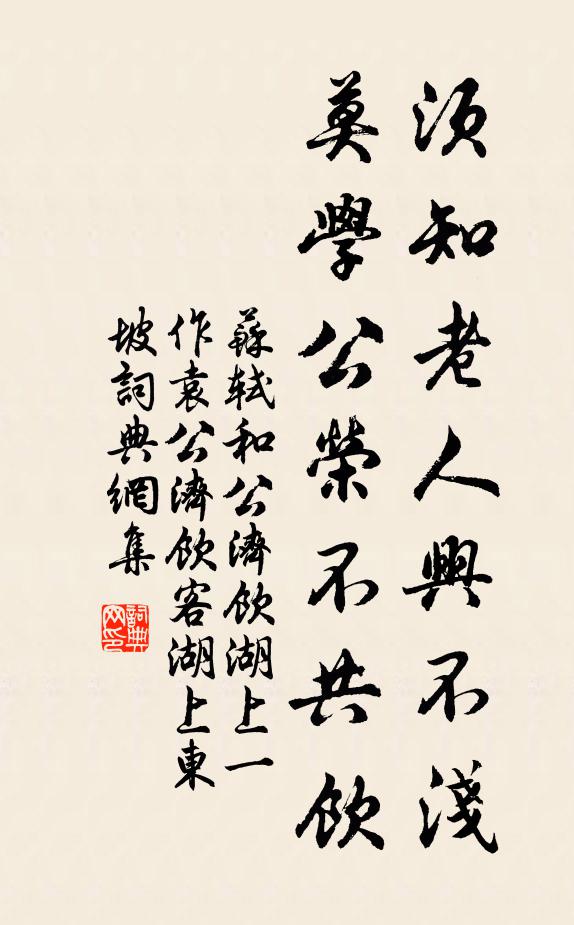 須知老人興不淺
莫學公榮不共飲
蘇軾和公濟飲湖上一
作袁公濟飲客湖上東
坡詞典網集
詞典
网印